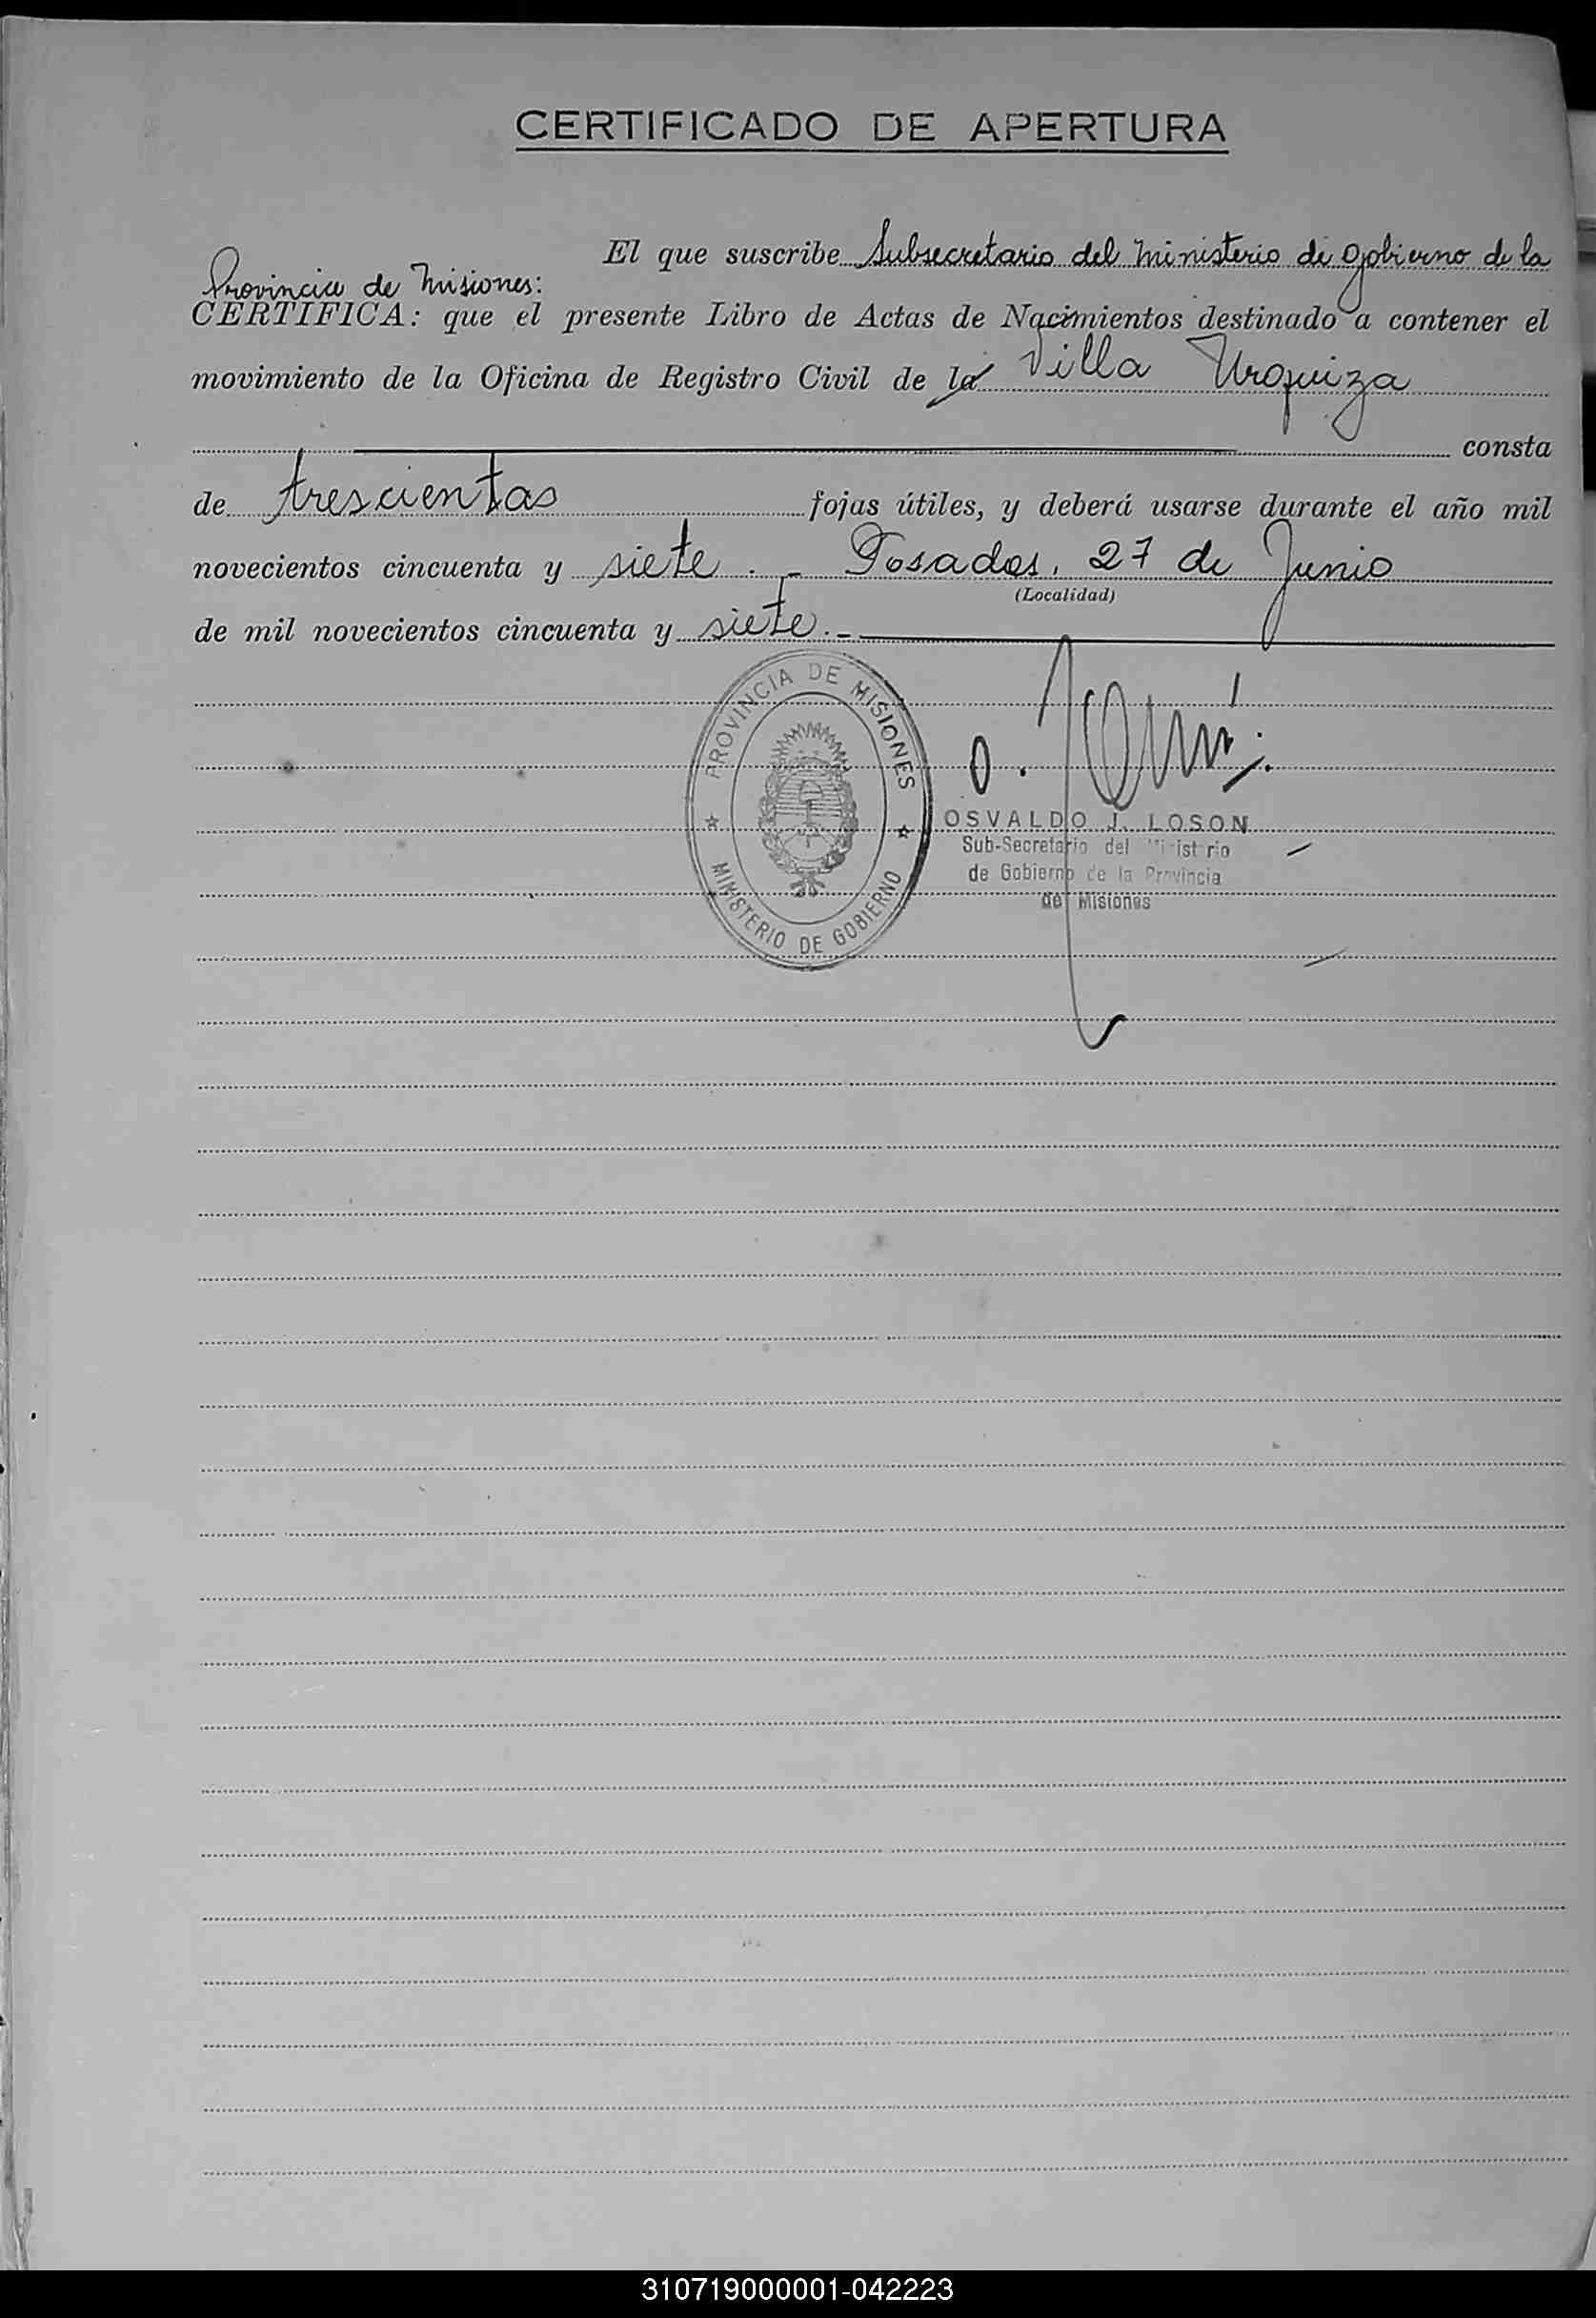 CERTIFICADO DE APERTURA
El que suscribe Subsecretario del Ministerio de Gobierno de la
Provincia de Misiones:
CERTIFICA: que el presente Libro de Actas de Nacimientos destinado a contener el
movimiento de la Oficina de Registro Civil de la Villa Urquiza
consta
de trescientas fojas útiles, y deberá usarse durante el año mil
novecientos cincuenta y siete.- Posadas, 27 de Junio
(Localidad)
de mil novecientos cincuenta y siete.-
PROVINCIA DE MISIONES
MINISTERIO DE GOBIERNO
OSVALDO J. LOSON
Sub-Secretario del Ministerio
de Gobierno de la Provincia
de Misiones
310719000001-042223